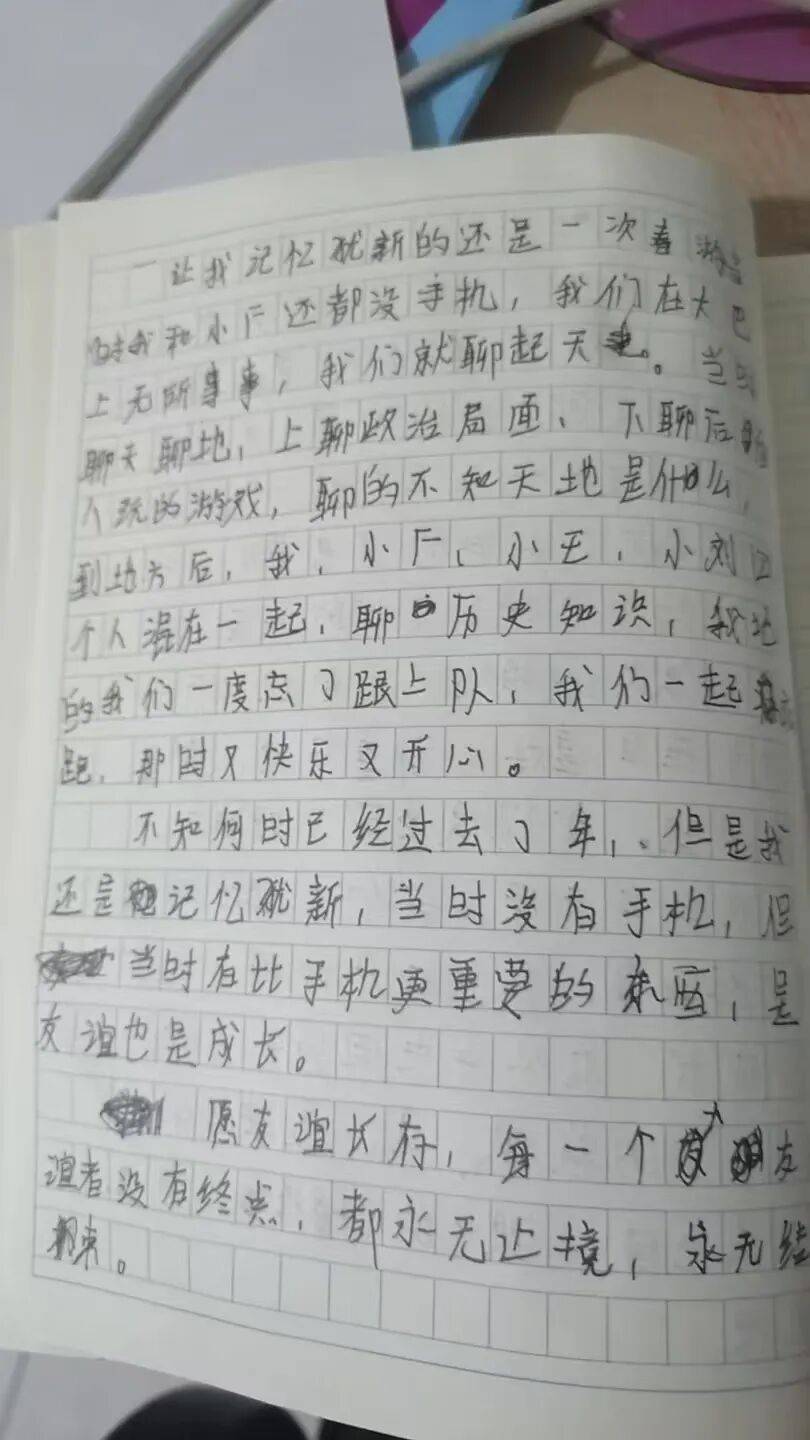 一让我记忆犹新的还是一次春游
时我和小厂还都没手机，我们在大巴
上无所事事，我们就聊起天。当时
聊天聊地，上聊政治局面、下聊后
人玩的游戏，聊的不知天地是什么，
到地方后，我、小厂、小王、小刘四
个人混在一起，聊历史知识，
的我们一度忘了跟上队，我们一起
跑，那时又快乐又开心。
不知何时已经过去了年，但是我
还是记忆犹新，当时没有手机，但
当时有比手机更重要的东西，是
友谊也是成长。
愿友谊长存，每一个友
谊者没有终点，都永无止境，永无结
束。